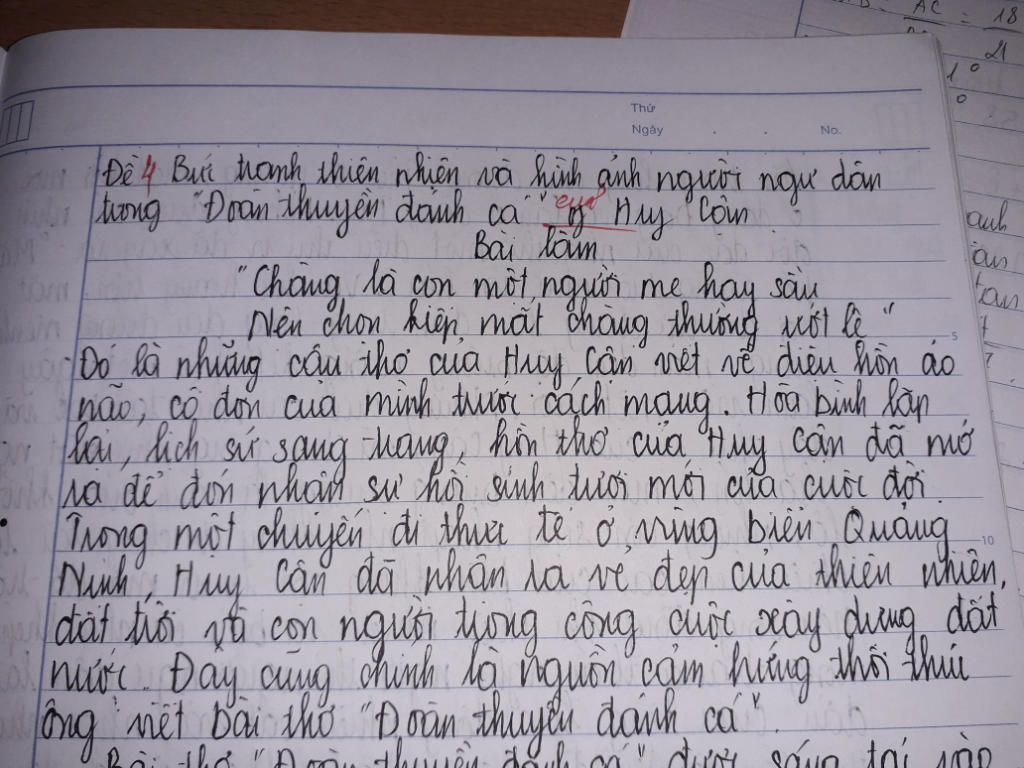 AC = 18
21
1°
Thứ
Ngày . . No.
Đề 4 Bức tranh thiên nhiên và hình ảnh người ngư dân
trong "Đoàn thuyền đánh cá" của Huy Cận
Bài làm
"Chàng là con một người mẹ hay sầu
Nên chọn kiếp mắt chàng thường ướt lệ"
5
Đó là những câu thơ của Huy Cận viết về điệu hồn áo
não, cô đơn của mình trước cách mạng. Hòa bình lập
lại, lịch sử sang trang, hồn thơ của Huy Cận đã mở
ra để đón nhận sự hồi sinh tươi mới của cuộc đời.
Trong một chuyến đi thực tế ở vùng biển Quảng
10
Ninh, Huy Cận đã nhận ra vẻ đẹp của thiên nhiên,
đất trời và con người trong công cuộc xây dựng đất
nước. Đây cũng chính là nguồn cảm hứng thôi thúc
ông viết bài thơ "Đoàn thuyền đánh cá".
Bài thơ "Đoàn thuyền đánh cá" được sáng tác vào